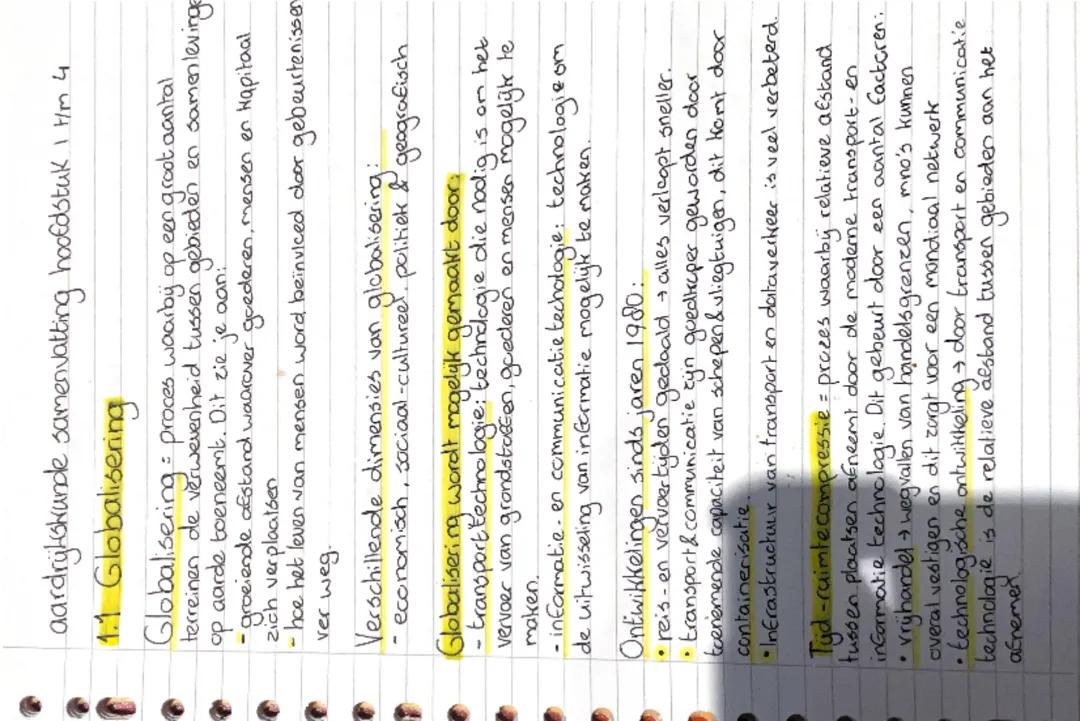 aardrijkskunde samenvatting hoofdstuk 1 H1 4
1.1 Globalisering
Globalisering = proces waarbij op een groot aantal
terreinen de verwevenheid tussen gebieden en samenleving
op aarde toeneemt. Dit zie je aan:
- groeiende afstand waarover goederen, mensen en kapitaal
zich verplaatsen
- hoe het leven van mensen word beïnvloed door gebeurtenissen
ver weg.
Verschillende dimensies van globalisering:
- economisch, sociaal-cultureel, politiek & geografisch
Globalisering wordt mogelijk gemaakt door:
- transporttechnologie: technologie die nodig is om het
vervoer van grondstoffen, goederen en mensen mogelijk te
maken.
- informatie- en communicatie techologie: technologie om
de uitwisseling van informatie mogelijk te maken.
Ontwikkelingen sinds jaren 1980:
• reis- en vervoertijden gedaald → alles verloopt sneller.
• transport & communicatie zijn goedkoper geworden door
toenemende capaciteit van schepen & vliegtuigen, dit komt door
containerisatie.
• Infrastructuur van transport en dataverkeer is veel verbeterd.
Tijd-ruimtecompressie = proces waarbij relatieve afstand
tussen plaatsen afneemt door de moderne transport- en
informatie technologie. Dit gebeurt door een aantal factoren:
• vrijhandel → wegvallen van handelsgrenzen, mno's kunnen
overal vestigen en dit zorgt voor een mondiaal netwerk
• technologische ontwikkeling → door transport en communicatie
technologie is de relatieve afstand tussen gebieden aan het
afnemen